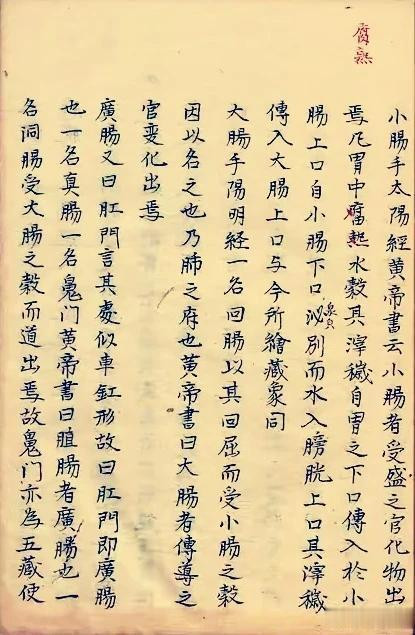 腐熟
小腸手太陽經黃帝書云小腸者受盛之官化物出
焉凡胃中腐熟水穀其滓穢自胃之下口傳入於小
腸上口自小腸下口泌別而水入膀胱上口其滓穢
傳入大腸上口与今所繪藏象同
大腸手陽明経一名回腸以其回屈而受小腸之穀
因以名之也乃肺之府也黃帝書曰大腸者傳導之
官变化出焉
廣腸又曰肛門言其處似車釭形故曰肛門即廣腸
也一名真腸一名鬼門黃帝書曰腸者廣腸也一
名洞腸受大腸之穀而道出焉故鬼門亦為五藏使